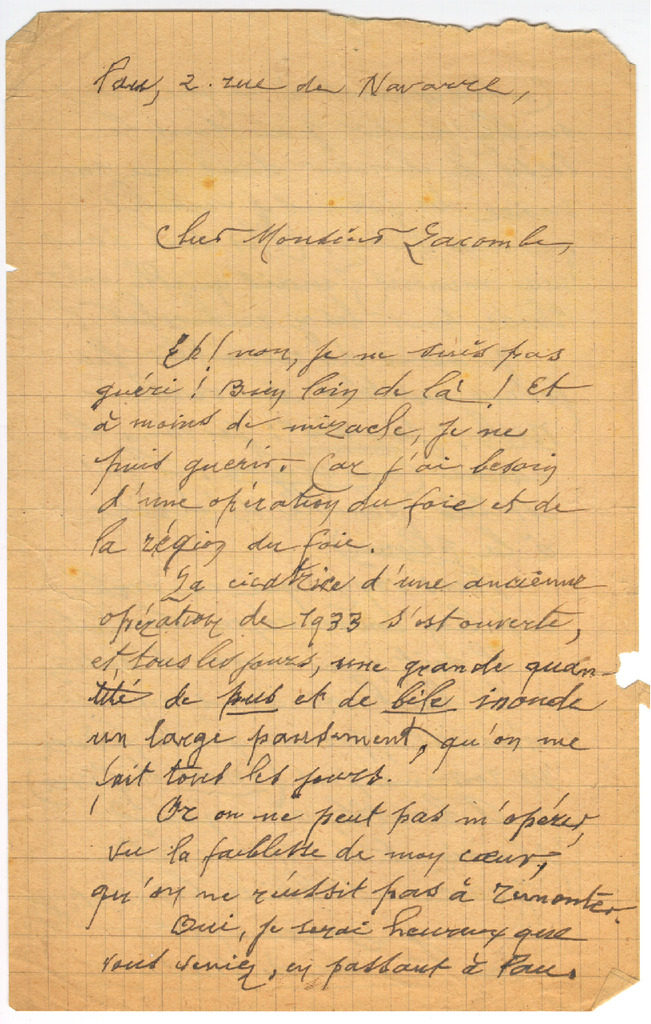 Pau, 2. rue de Navarre,
Cher Monsieur Lacombe,
Eh! non, je ne suis pas
guéri! Bien loin de là! Et
à moins de miracle, je ne
puis guérir. Car j'ai besoin
d'une opération du foie et de
la région du foie.
La cicatrice d'une ancienne
opération de 1933 s'est ouverte,
et, tous les jours, une grande quan-
tité de pus et de bile inonde
un large pansement, qu'on me
fait tous les jours.
Or on ne peut pas m'opérer,
vu la faiblesse de mon cœur,
qu'on ne réussit pas à remonter.
Oui, je serai heureux que
vous veniez, en passant à Pau.